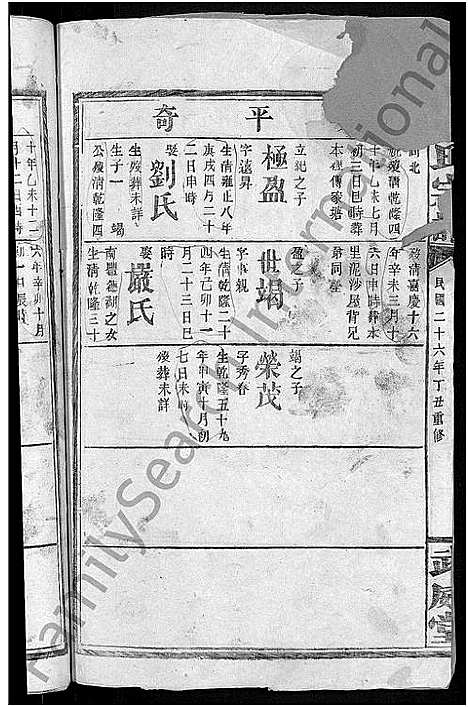 民國二十六年丁丑重修
武威堂
平奇
十年乙未七月
初三日巳時葬
立紀之子
極盈
字遠昇
生清雍正八年
庚戌四月二十
二日申時
娶劉氏
生歿葬未詳
生子一 竭
公歿清乾隆四
十年乙未十二
歿清嘉慶十六
年辛未三月十
六日申時葬本
里泥沙屋背兄
弟同塋
盈之子
世竭
字車親
生清乾隆二十
四年己卯十一
月二十三日巳
時
娶嚴氏
南豐德朝之女
生清乾隆三十
六年辛卯十月
竭之子
榮茂
字秀春
生乾隆五十九
年甲寅十月初
七日未時
歿葬未詳
FamilySearch International